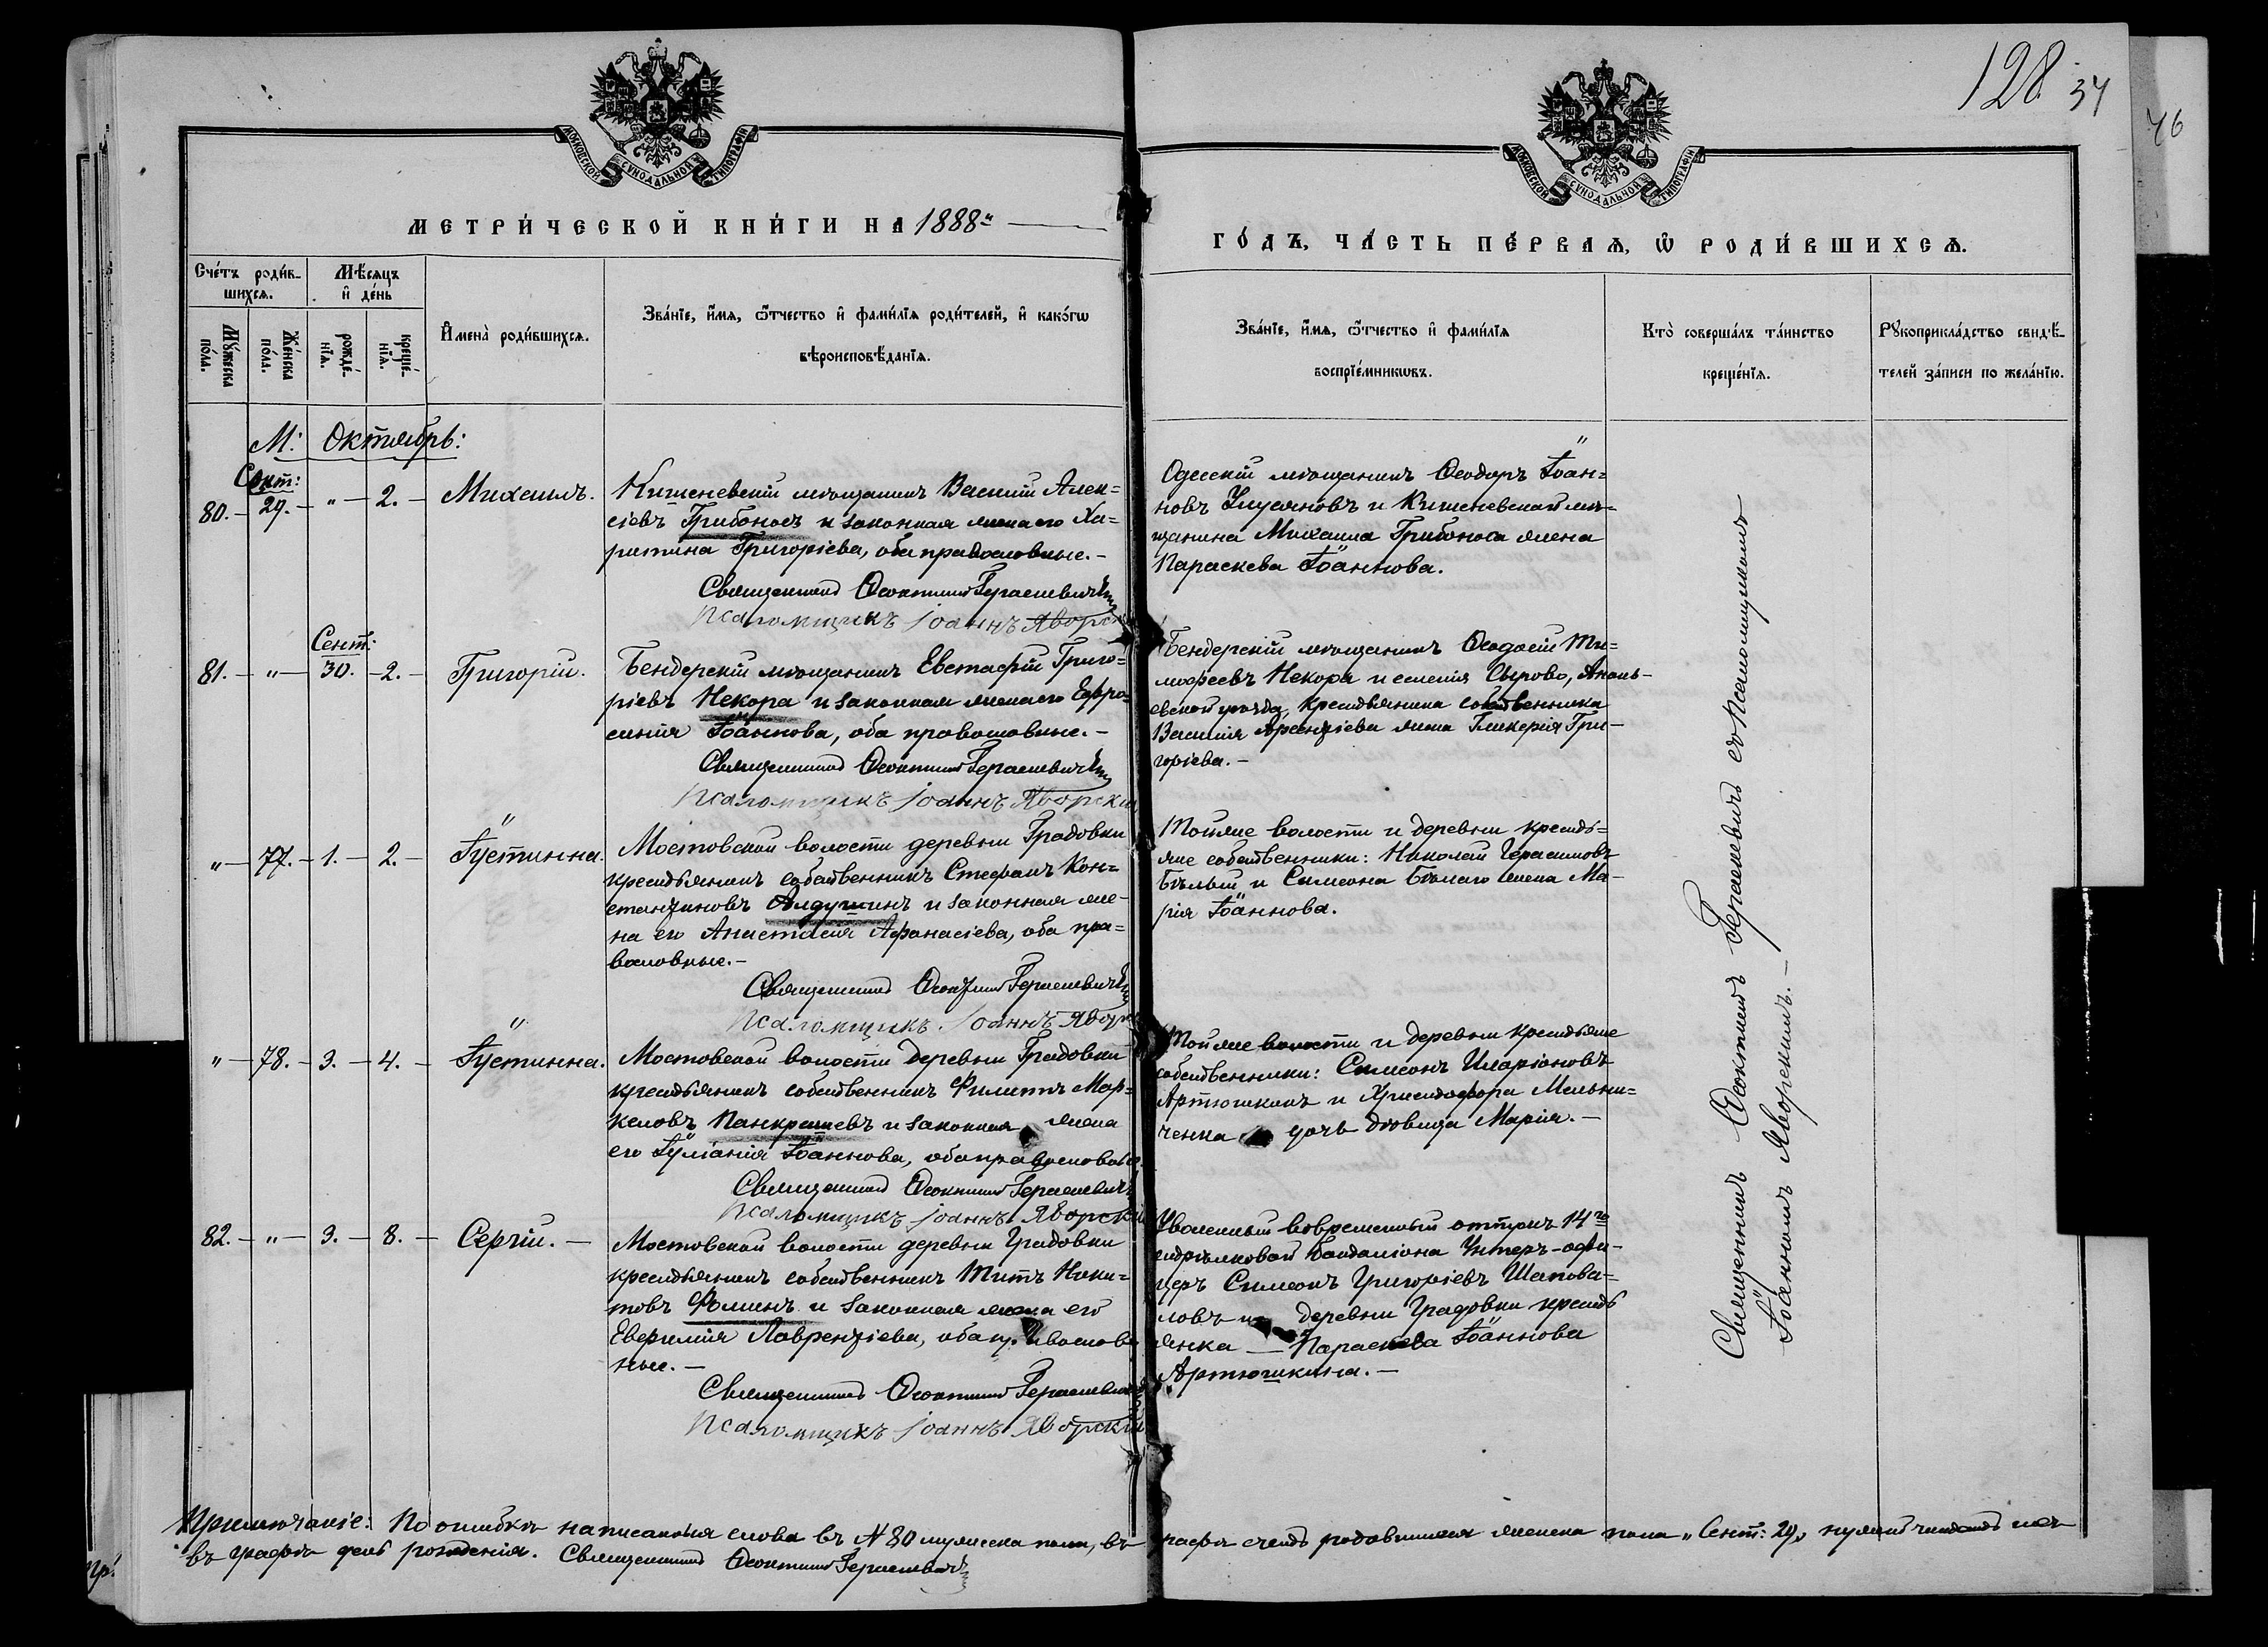 128 34
46
МОСКОВСКОЙ СѴНОДАЛЬНОЙ ТИПОГРАФІИ
МОСКОВСКОЙ СѴНОДАЛЬНОЙ ТИПОГРАФІИ
МЕТРИ́ЧЕСКОЙ КНИ́ГИ НА 1888й
ГО́ДЪ, ЧА́СТЬ ПЕ́РВАѦ, Ѿ РОДИ́ВШИХСѦ.
Сче́тъ роди́в-
шихсѧ.
Мѣ́сѧцъ
и҆ де́нь
Мꙋ́жеска по́ла.
Же́нска по́ла.
рожде́-нїѧ.
креще́-нїѧ.
И҆мена̀ роди́вшихсѧ.
Зва́нїе, и҆́мѧ, ѻ҆́тчество и҆ фами́лїѧ роди́телей, и҆ како́гѡ
вѣроисповѣ́данїѧ.
Зва́нїе, и҆́мѧ, ѻ҆́тчество и҆ фами́лїѧ
воспрїе́мникѡвъ.
Кто̀ соверша́лъ та́инство
креще́нїѧ.
Рꙋкоприкла́дство свидѣ́-
телей за́писи по жела́нїю.
М: Октябрь:
Сент:
80. — 29. — " — 2. — Михаилъ.
Кишеневскій мѣщанинъ Василій Алек=
сіевъ Грибоносъ и законная жена его Ха=
ритина Григоріева, оба православные. —
Священникъ Ѳеоктистъ Герасевичъ
Псаломщикъ Іоаннъ Яворскій
Одесскій мѣщанинъ Ѳеодоръ Іоан=
новъ и Кишеневскаго мѣ=
щанина Михаила Грибоноса жена
Параскева Іоаннова.
Сент:
81. — " — 30. — 2. — Григорій.
Бендерскій мѣщанинъ Евстафій Григо=
ріевъ Некора и законная жена его Ефро=
синія Іоаннова, оба православные. —
Священникъ Ѳеоктистъ Герасевичъ
Псаломщикъ Іоаннъ Яворскій
Бендерскій мѣщанинъ Ѳеодосій Ти=
моѳеевъ Некора и селенія Сырово, Анань-
евскаго уѣзда, крестьянина собственника
Василія Арсентіева жена Гликерія Гри-
горіева. —
" — 77. — 1. — 2. — Іустинна.
Мостовской волости деревни Градовки
крестьянинъ собственникъ Стефанъ Кон=
стантиновъ Алдушинъ и законная же-
на его Анастасія Аѳанасіева, оба пра=
вославные. —
Священникъ Ѳеоктистъ Герасевичъ
Псаломщикъ Іоаннъ Яворскій
Той же волости и деревни крестья=
не собственники: Николай Герасимовъ
Бѣлый и Симеона Бѣлаго жена Ма-
рія Іоаннова.
" — 78. — 3. — 4. — Іустинна.
Мостовской волости деревни Градовки
крестьянинъ собственникъ Филиппъ Мар=
келовъ Панкрашевъ и законная жена
его Іуліанія Іоаннова, оба православные.
Священникъ Ѳеоктистъ Герасевичъ
Псаломщикъ Іоаннъ Яворскій
Той же волости и деревни крестьяне
собственники: Симеонъ Иларіоновъ
Артюшкинъ и Христофора Мельни=
ченка дочь дѣвица Марія. —
82. — " — 3. — 8. — Сергій. —
Мостовской волости деревни Градовки
крестьянинъ собственникъ Титъ Ники=
товъ Фоминъ и законная жена его
Евфимія Лаврентіева, оба православ-
ные. —
Священникъ Ѳеоктистъ Герасевичъ
Псаломщикъ Іоаннъ Яворскій
Уволенный вовременный отпускъ 14го
стрѣлковаго баталіона Унтеръ-офи-
церъ Симеонъ Григоріевъ Шапова=
ловъ и деревни Градовки кресть
янка — Параскева Іоаннова
Артюшкина. —
Священникъ Ѳеоктистъ Герасевичъ съ псаломщикомъ
Іоанномъ Яворскимъ. —
Примѣчаніе: По ошибкѣ написанныя слова въ № 80 мужеска пола, въ графѣ счетъ родившихся женска пола „Сент: 29„
въ графѣ день рожденія. Священникъ Ѳеоктистъ Герасевичъ